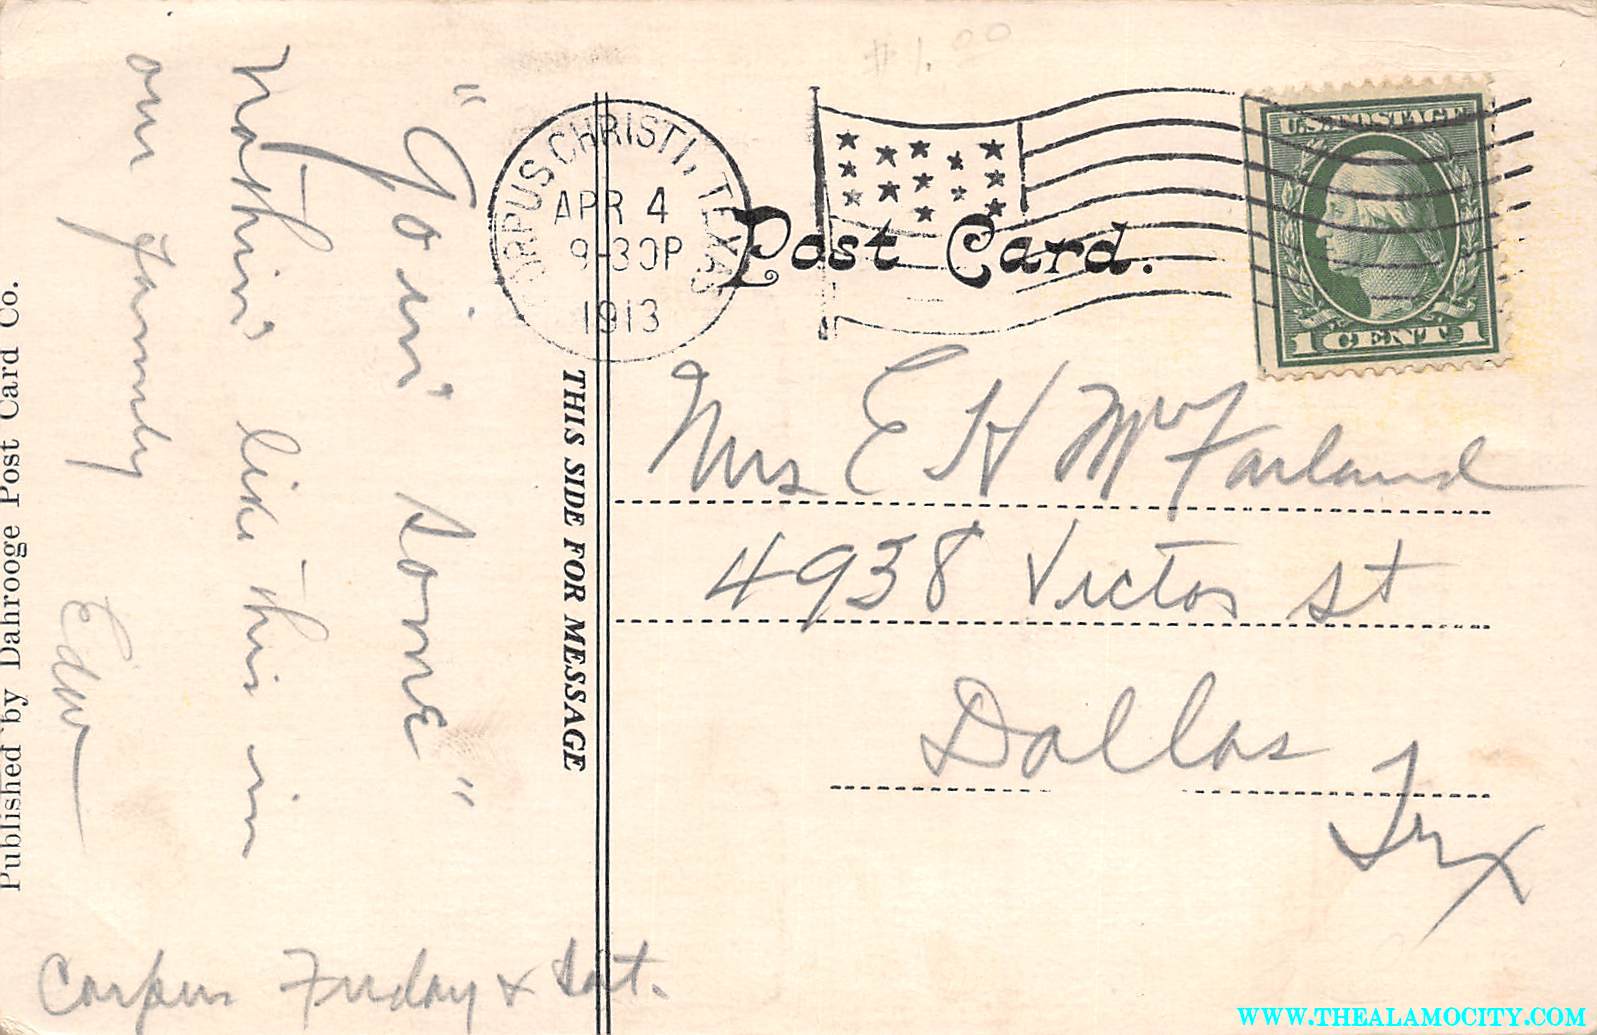 $1.00
CORPUS CHRISTI, TEXAS
APR 4
9-30P
1913
U.S. POSTAGE
1 CENT 1
Post Card.
THIS SIDE FOR MESSAGE
Published by Dahrooge Post Card Co.
"Goin' some"
Nothin' like this in
our family
Edw
Corpus Friday & Sat.
Mrs E H McFarland
4938 Victor St
Dallas
Tex
WWW.THEALAMOCITY.COM